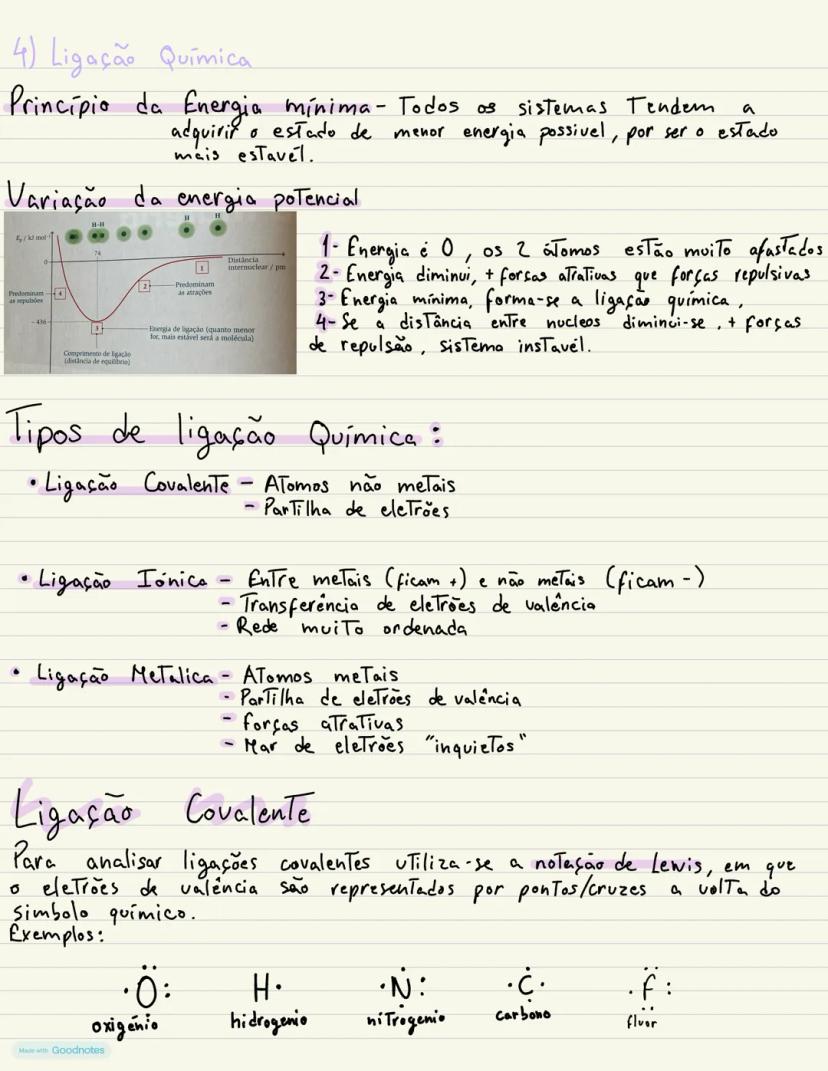 4) Ligação Química
Princípio da Energia mínima - Todos os sistemas Tendem a
adquirir o estado de menor energia possivel, por ser o estado
mais estavél.
Variação da energia potencial
H-H
H
H
Ep / kJ mol⁻¹
74
0
Distância
internuclear / pm
1
2
Predominam
as atrações
Predominam
as repulsões
4
-436
3
Energia de ligação (quanto menor
for, mais estável será a molécula)
Comprimento de ligação
(distância de equilíbrio)
1- Energia é 0, os 2 átomos estão muito afastados
2- Energia diminui, + forças atrativas que forças repulsivas
3- Energia mínima, forma-se a ligação química,
4- Se a distância entre nucleos diminui-se, + forças
de repulsão, sistema instavél.
Tipos de ligação Química:
• Ligação Covalente - Atomos não metais
- Partilha de eletrões
• Ligação Iónica - Entre metais (ficam +) e não metais (ficam -)
- Transferência de eletrões de valência
- Rede muito ordenada
• Ligação Metalica - Atomos metais
- Partilha de eletrões de valência
- forças atrativas
- Mar de eletrões "inquietos"
Ligação Covalente
Para analisar ligações covalentes utiliza-se a notação de Lewis, em que
o eletrões de valência são representados por pontos/cruzes a volta do
simbolo químico.
Exemplos:
O H N C F
oxigénio hidrogenio nitrogenio carbono fluor
Made with Goodnotes